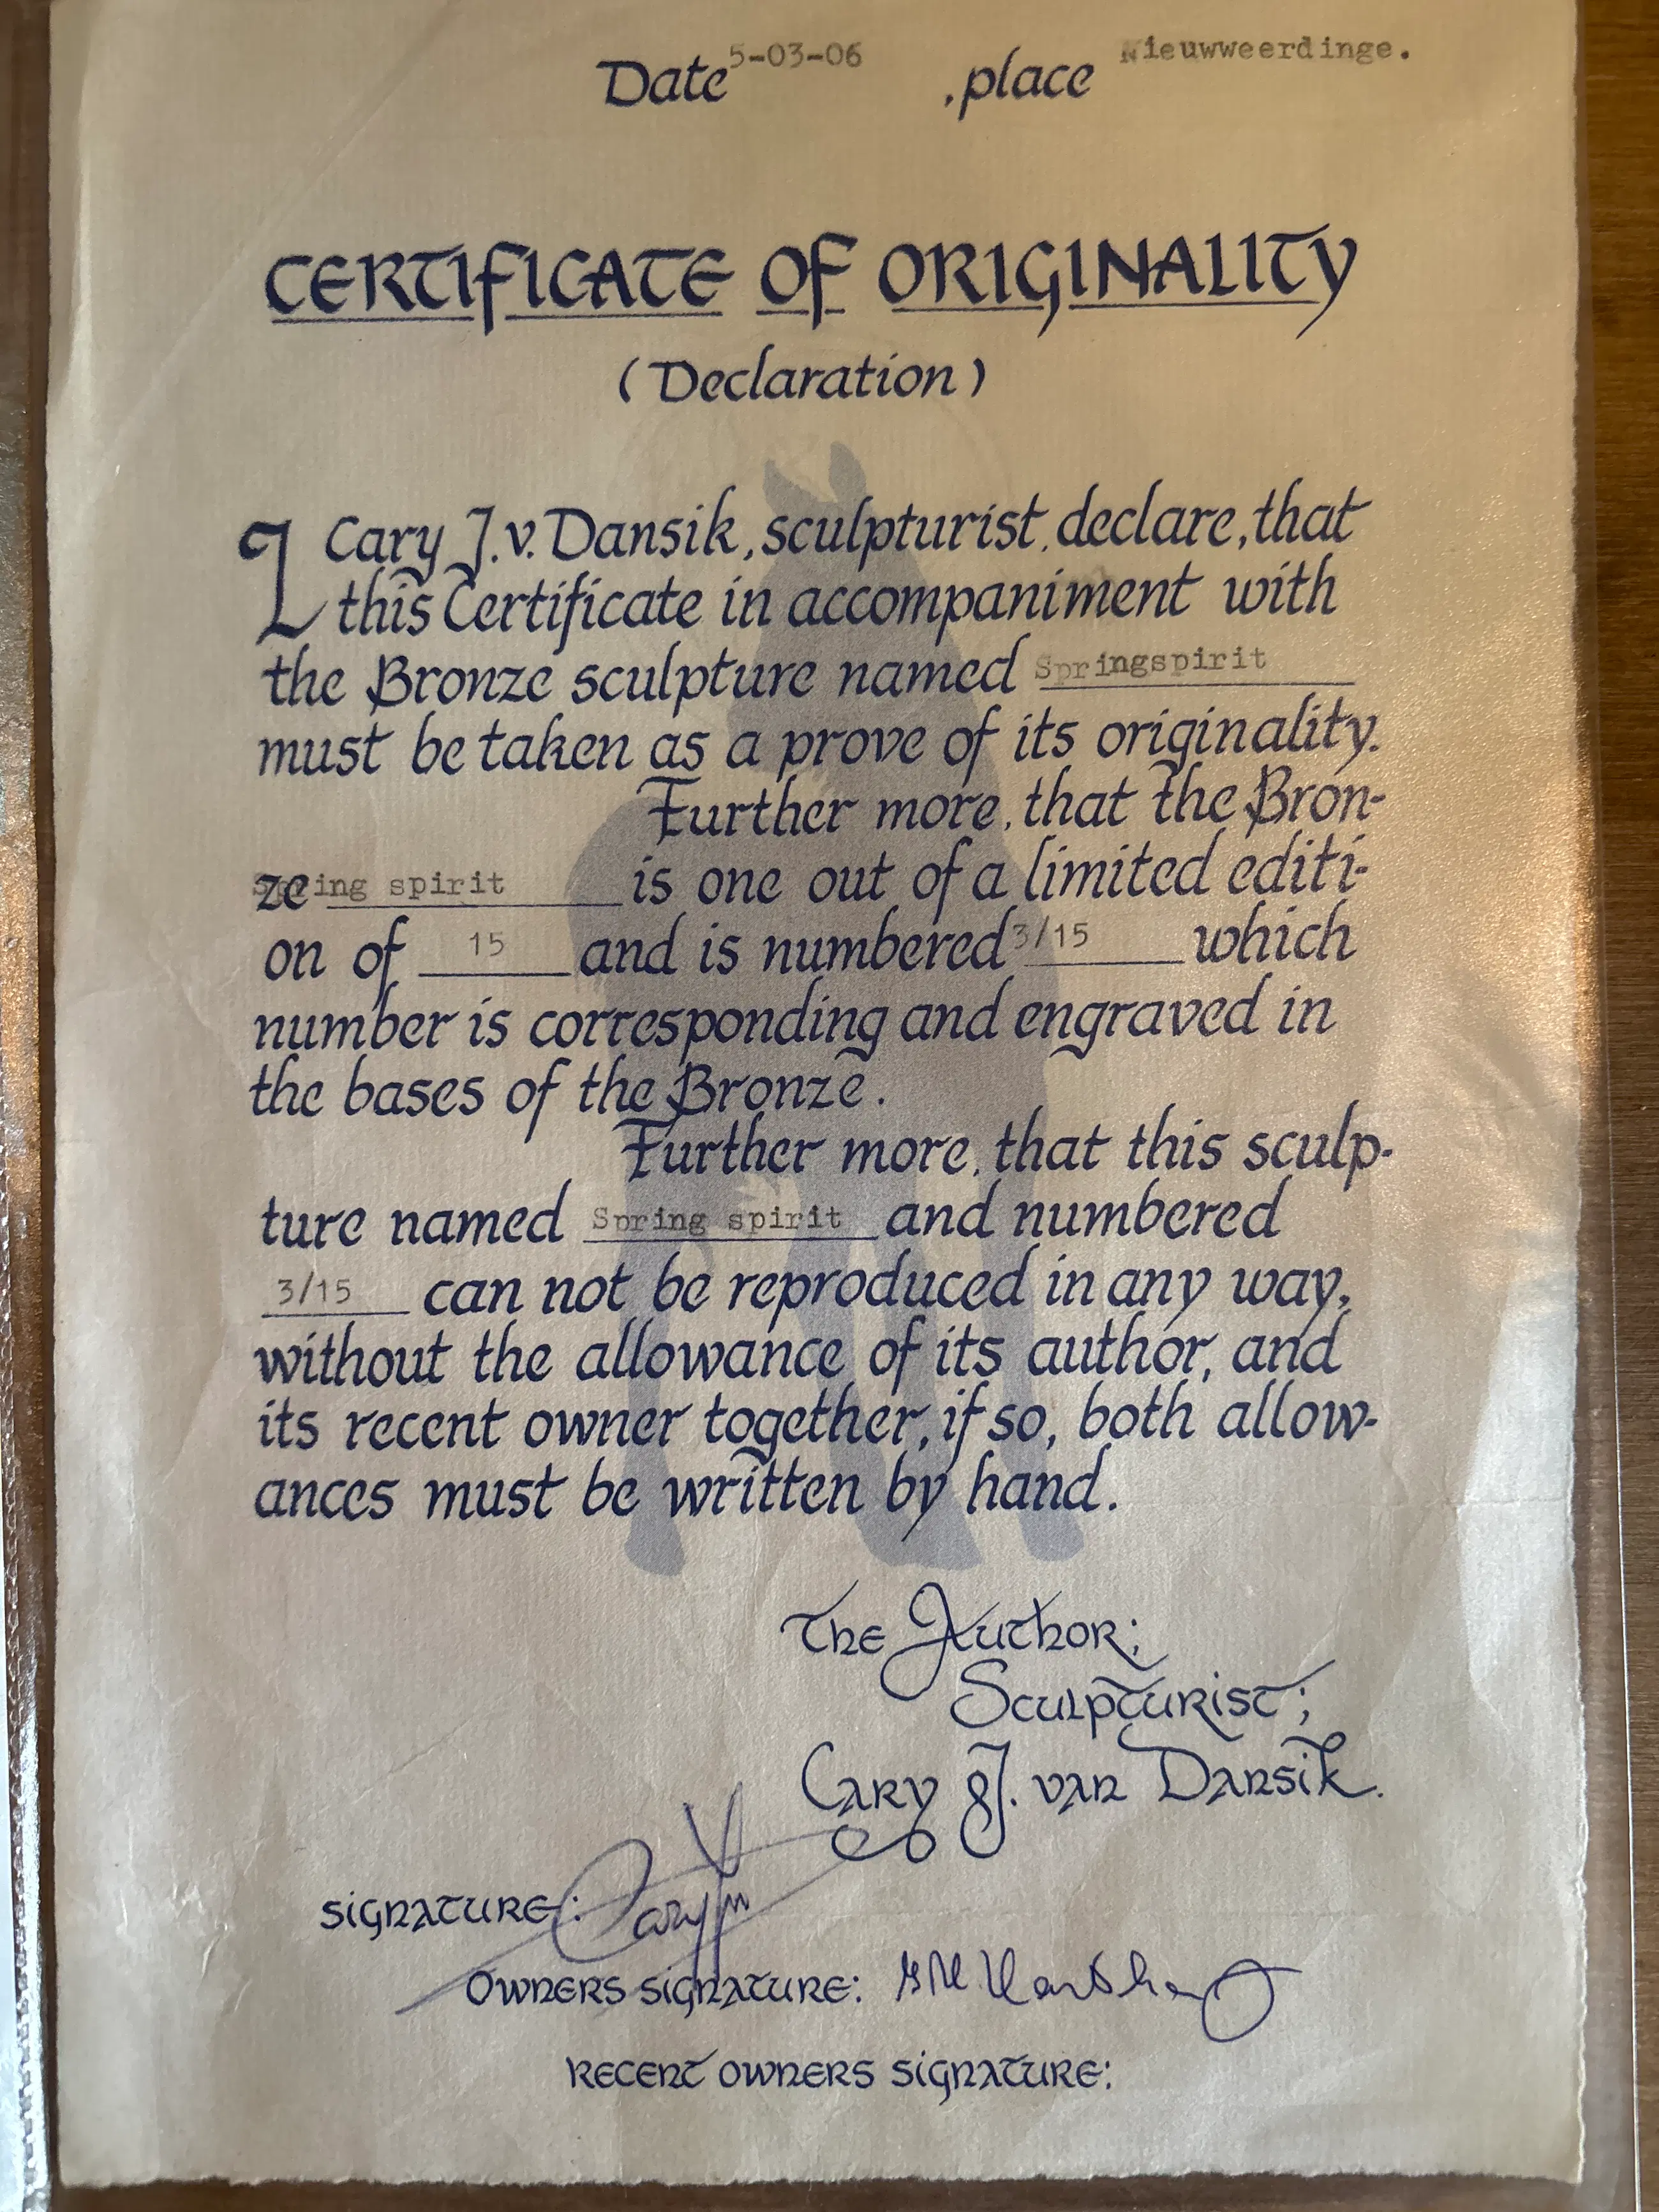 Date 5-03-06 , place Nieuwweerdinge.
CERTIFICATE OF ORIGINALITY
(Declaration)
I Cary J. v. Dansik, sculpturist, declare, that
this Certificate in accompaniment with
the Bronze sculpture named Springspirit
must be taken as a prove of its originality.
Further more, that the Bron-
ze Spring spirit is one out of a limited editi-
on of 15 and is numbered 3/15 which
number is corresponding and engraved in
the bases of the Bronze.
Further more, that this sculp-
ture named Spring spirit and numbered
3/15 can not be reproduced in any way,
without the allowance of its author, and
its recent owner together, if so, both allow-
ances must be written by hand.
The Author;
Sculpturist;
Cary J. van Dansik.
SIGNATURE: Cary
OWNERS SIGNATURE:
RECENT OWNERS SIGNATURE: